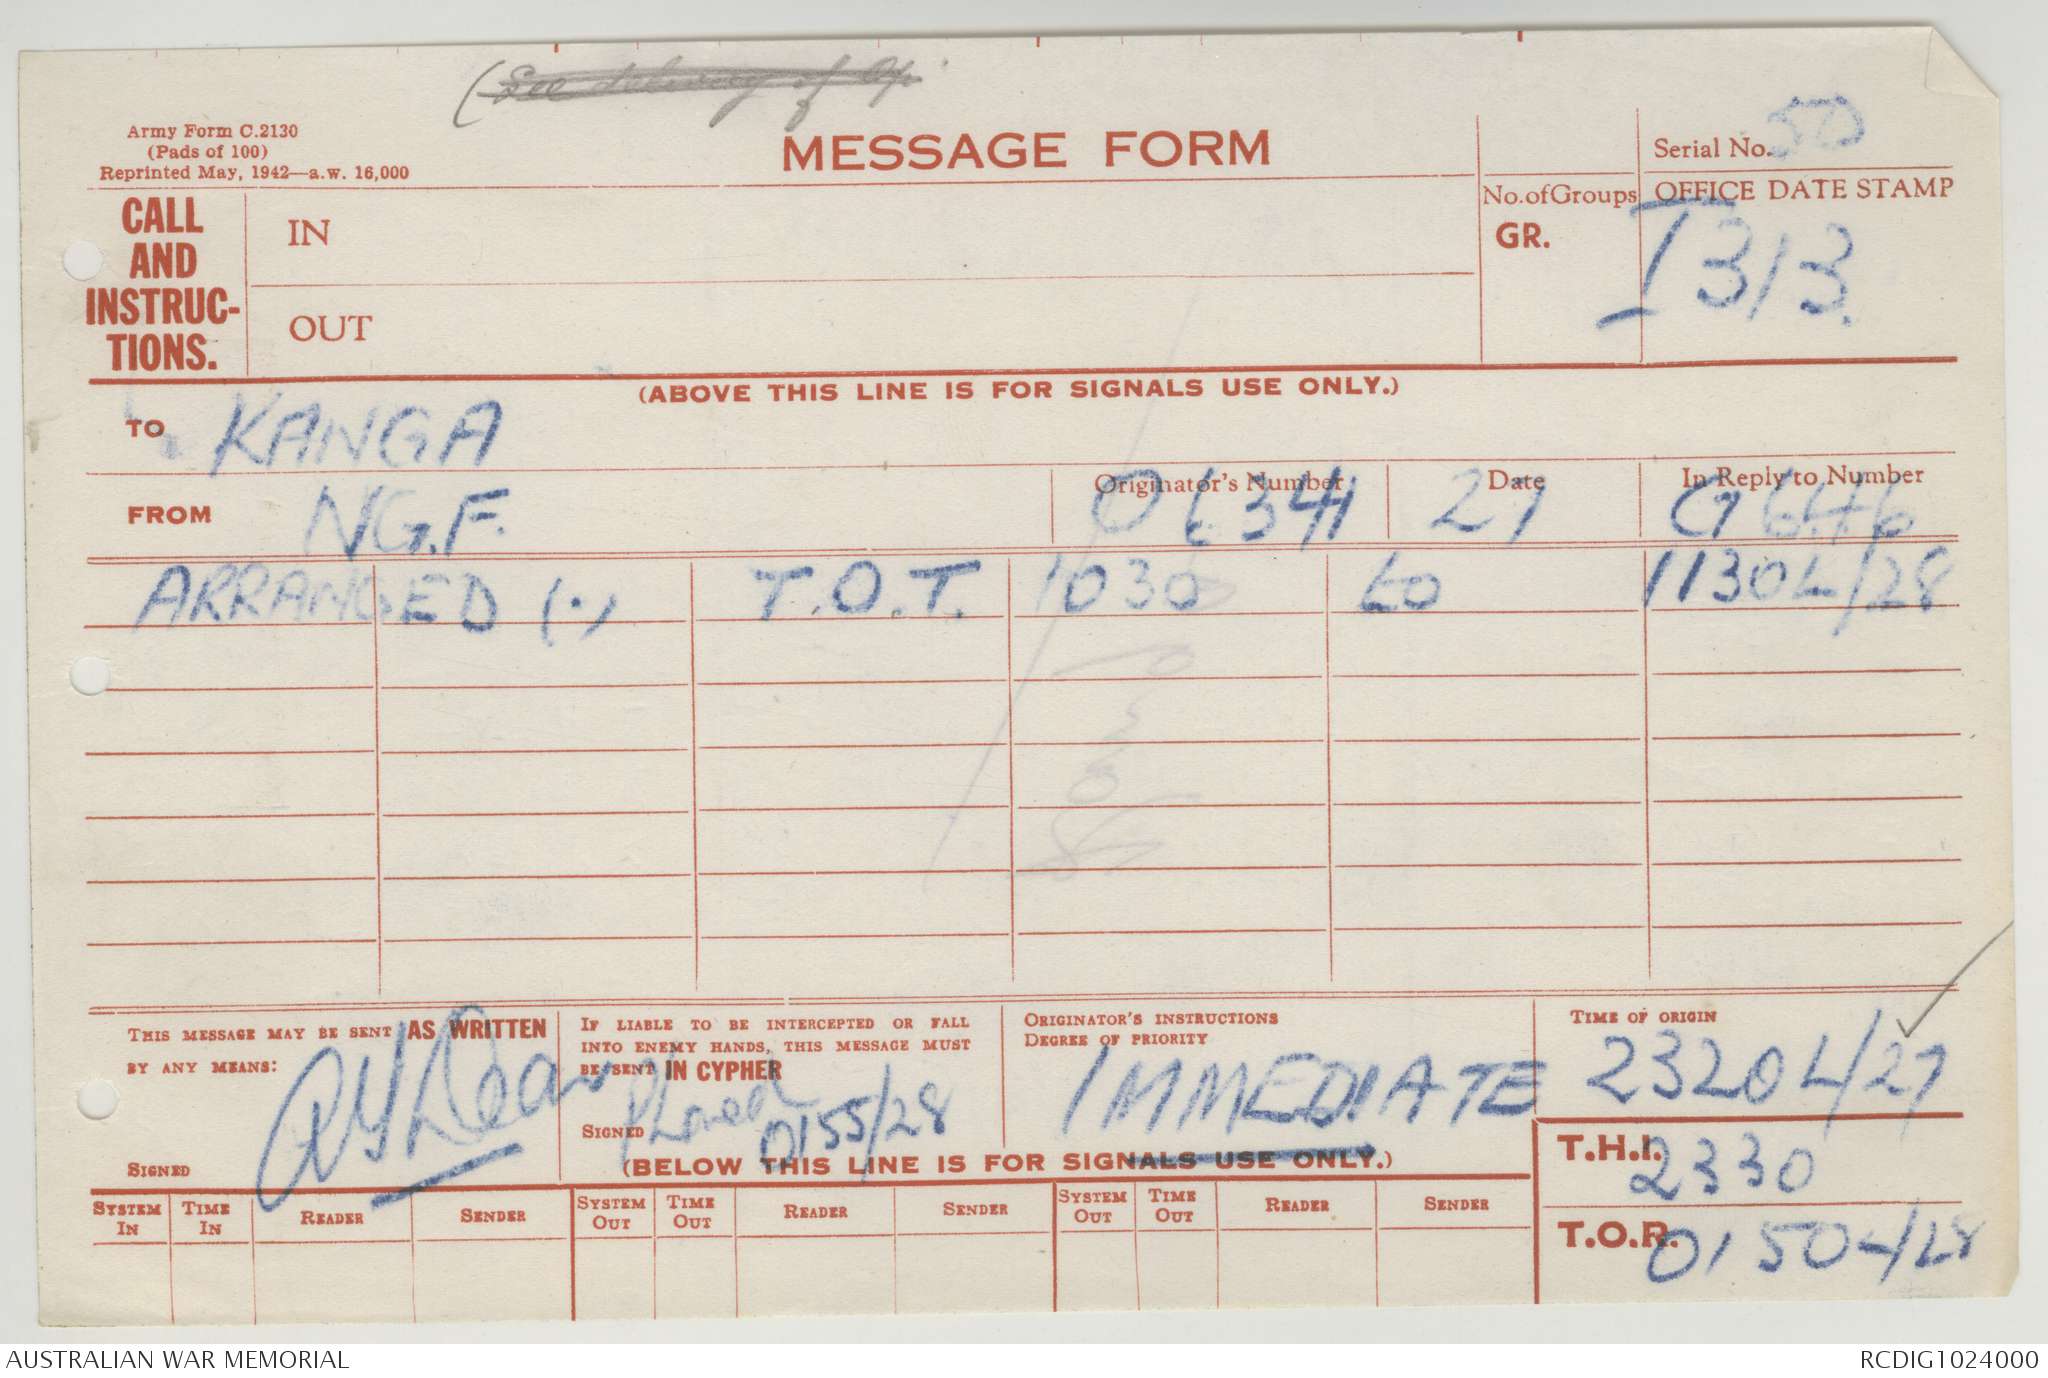 (See delivery of Op.
Army Form C.2130
(Pads of 100)
Reprinted May, 1942—a.w. 16,000
MESSAGE FORM
Serial No. 50
No. of Groups
GR.
OFFICE DATE STAMP
I 313.
CALL
AND
INSTRUC-
TIONS.
IN
OUT
(ABOVE THIS LINE IS FOR SIGNALS USE ONLY.)
TO KANGA
FROM N.G.F.
Originator's Number
Date 27
In Reply to Number
G 646
ARRANGED (.) T.O.T. 1030 to 1130L/28
THIS MESSAGE MAY BE SENT AS WRITTEN
BY ANY MEANS:
SIGNED
IF LIABLE TO BE INTERCEPTED OR FALL
INTO ENEMY HANDS, THIS MESSAGE MUST
BE SENT IN CYPHER
SIGNED
0155/28
ORIGINATOR'S INSTRUCTIONS
DEGREE OF PRIORITY
IMMEDIATE
TIME OF ORIGIN
2320L/27
T.H.I. 2330
T.O.R. 0150L/28
(BELOW THIS LINE IS FOR SIGNALS USE ONLY.)
SYSTEM IN TIME IN READER SENDER SYSTEM OUT TIME OUT READER SENDER SYSTEM OUT TIME OUT READER SENDER
AUSTRALIAN WAR MEMORIAL
RCDIG1024000